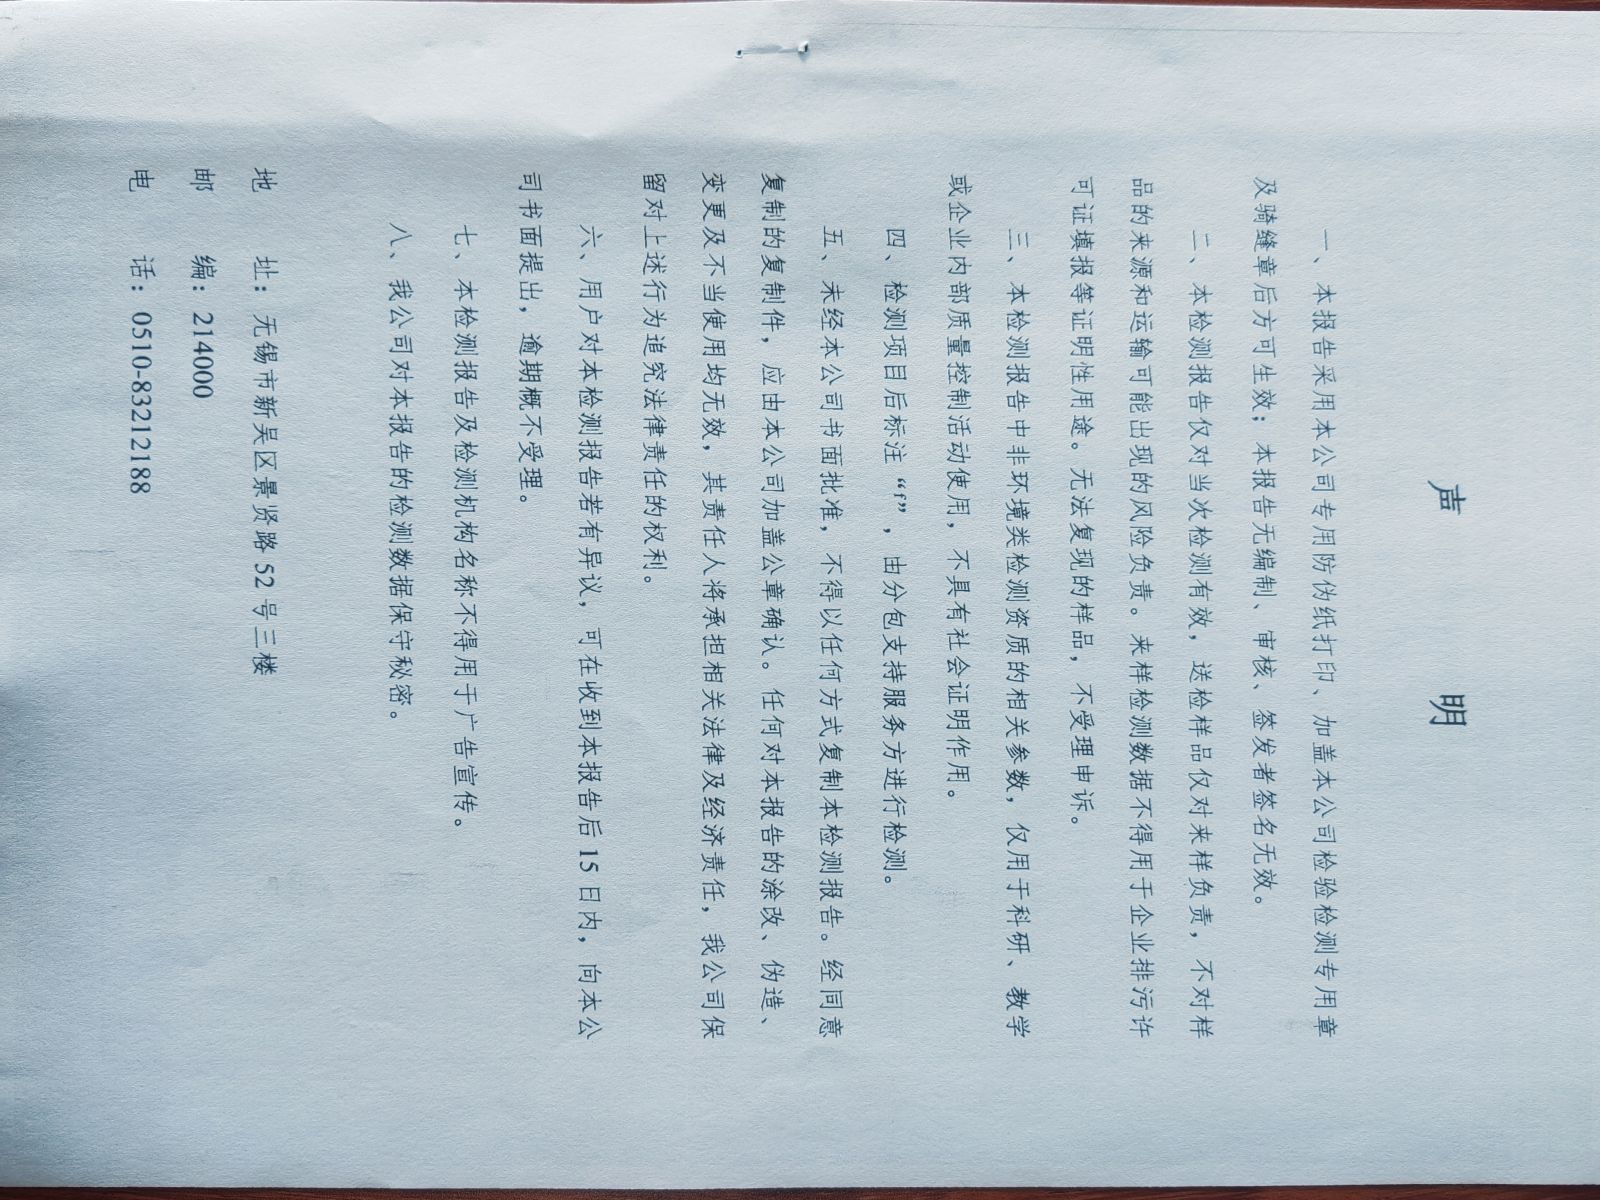 声 明
一、本报告采用本公司专用防伪纸打印、加盖本公司检验检测专用章
及骑缝章后方可生效；本报告无编制、审核、签发者签名无效。
二、本检测报告仅对当次检测有效，送检样品仅对来样负责，不对样
品的来源和运输可能出现的风险负责。来样检测数据不得用于企业排污许
可证填报等证明性用途。无法复现的样品，不受理申诉。
三、本检测报告中非环境类检测资质的相关参数，仅用于科研、教学
或企业内部质量控制活动使用，不具有社会证明作用。
四、检测项目后标注“f”，由分包支持服务方进行检测。
五、未经本公司书面批准，不得以任何方式复制本检测报告。经同意
复制的复制件，应由本公司加盖公章确认。任何对本报告的涂改、伪造、
变更及不当使用均无效，其责任人将承担相关法律及经济责任，我公司保
留对上述行为追究法律责任的权利。
六、用户对本检测报告若有异议，可在收到本报告后 15 日内，向本公
司书面提出，逾期概不受理。
七、本检测报告及检测机构名称不得用于广告宣传。
八、我公司对本报告的检测数据保守秘密。
地 址：无锡市新吴区景贤路 52 号三楼
邮 编：214000
电 话：0510-83212188